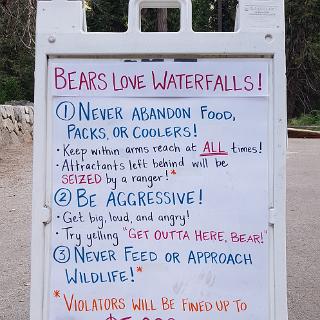 BEARS LOVE WATERFALLS!
① NEVER ABANDON FOOD,
PACKS, OR COOLERS!
• Keep within arms reach at ALL times!
• Attractants left behind will be
SEIZED by a ranger!*
② BE AGGRESSIVE!
• Get big, loud, and angry!
• Try yelling "GET OUTTA HERE, BEAR!"
③ NEVER FEED OR APPROACH
WILDLIFE!*
*VIOLATORS WILL BE FINED UP TO